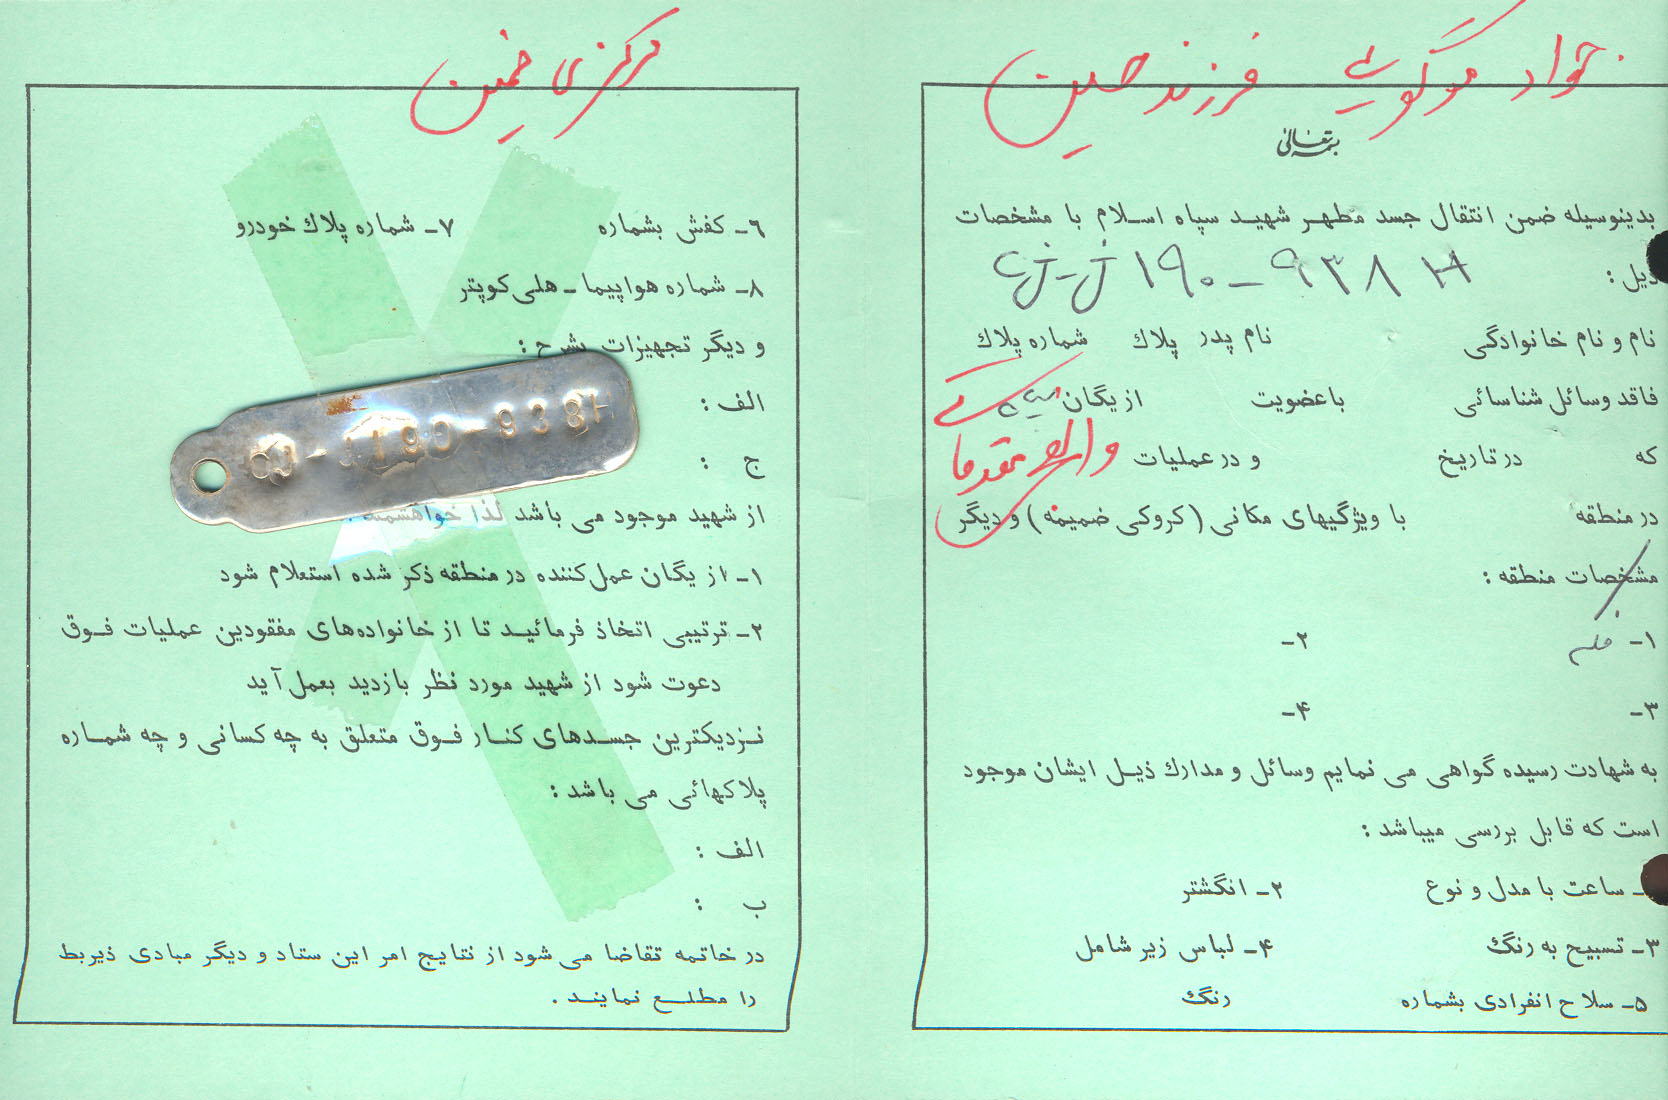 جواد موگویی فرزند حسین
بسمه تعالی
بدینوسیله ضمن انتقال جسد مطهر شهید سپاه اسلام با مشخصات
ذیل : ۱۹۰-۹۳۸ H
نام و نام خانوادگی نام پدر پلاك شماره پلاك
فاقد وسائل شناسائی باعضویت از یگان
که در تاریخ و در عملیات والفجر مقدماتی
در منطقه با ویژگیهای مکانی ( کروکی ضمیمه ) و دیگر
مشخصات منطقه :
۱- فکه ۲-
۳- ۴-
به شهادت رسیده گواهی می نمایم وسائل و مدارك ذیل ایشان موجود
است که قابل بررسی میباشد :
- ساعت با مدل و نوع ۲- انگشتر
۳- تسبیح به رنگ ۴- لباس زیر شامل
۵- سلاح انفرادی بشماره رنگ
مرکزی خمین
۶- کفش بشماره ۷- شماره پلاك خودرو
۸- شماره هواپیما - هلی کوپتر
و دیگر تجهیزات بشرح :
الف :
-1190-938H
ج :
از شهید موجود می باشد لذا خواهشمند
۱- از یگان عمل کننده در منطقه ذکر شده استعلام شود
۲- ترتیبی اتخاذ فرمائید تا از خانواده‌های مفقودین عملیات فوق
دعوت شود از شهید مورد نظر بازدید بعمل آید
نزدیکترین جسدهای کنار فوق متعلق به چه کسانی و چه شماره
پلاکهائی می باشد :
الف :
ب :
در خاتمه تقاضا می شود از نتایج امر این ستاد و دیگر مبادی ذیربط
را مطلع نمایند .